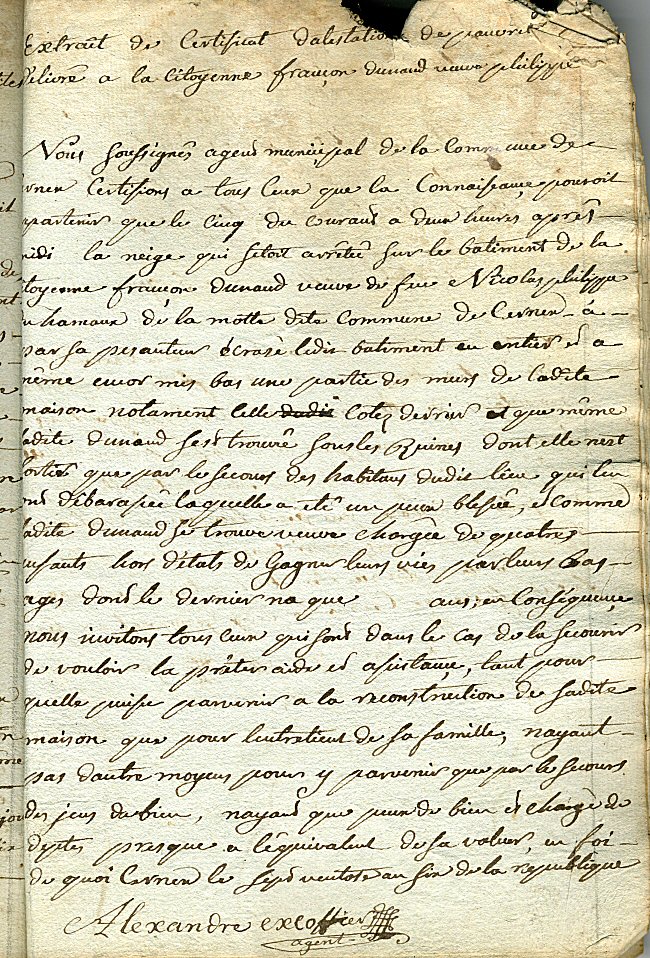 Extrait de Certificat datestation de pauvret
delivré a la Citoyenne françon dunand veuve philippe
Nous soussignés agent municipal de la Commune de
Cernex Certifions a tous Ceux que la Connaiseance pouroit
apartenir que le Cinq du Courand a deux heures après
midi la neige qui setoit arrêtée sur le batiment de la
Citoyenne françon dunand veuve de feu Nicolas philippe
du hamaux de la motte dite Commune de Cernex a
par sa pesanteur écrasé ledit batiment en entier et a
même encor mis bas une partie des murs de ladite
maison notament Celle dudit Cotes derrier et que même
ladite dunand sest trouvée sous les Ruines dont elle nest
sortie que par le secours des habitans dudit lieu qui len
ont débarasée laquelle a eté un peux blessée, et comme
ladite dunand se trouve veuve chargée de quatre
enfants hors d'états de Gagner leurs vies par leurs bas
ages dont le dernier na que ans, en Conséquence
nous invitons tous ceux qui sont dans le cas de la secourir
de vouloir la prêter aide et asistance, tant pour
quelle puise parvenir a la reconstruction de sadite
maison que pour lentretient de sa famille, nayant
pas dautre moyens pour y parvenir que par le secours
des jens de bien, nayant que peux de bien et chargé de
deptes presque a léquivalent de sa valeur, en foi
de quoi Cernex le sept ventose an six de la republique
Alexandre excoffier
agent